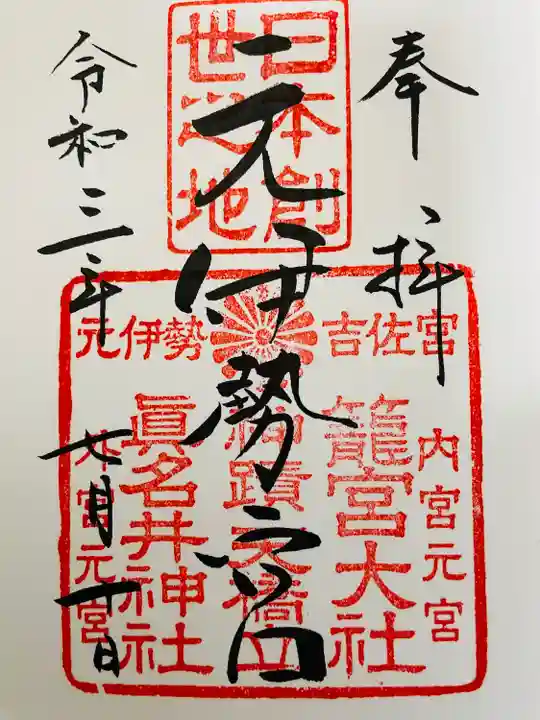 奉拝
日本創
世之地
元伊勢宮
吉佐宮
元伊勢
内宮元宮
籠宮大社
神蹟天橋立
眞名井神社
外宮元宮
令和三年
七月十日